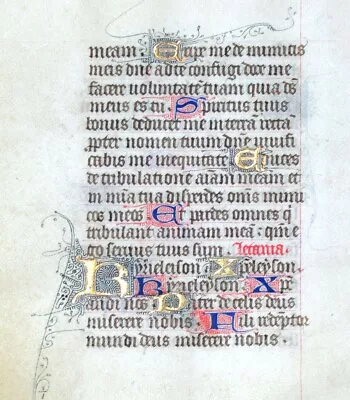 meam: Eripe me de inimicis
meis dne ad te confugi doce me
facere voluntatē tuam quia ds
meus es tu. Spiritus tuus
bonus deducet me in terrā rectā
ppter nomen tuum dne vivifi
cabis me in equitate Educes
de tribulatione aīam meam et
in mīa tua disperdes omīs inimi
cos meos Et perdes omnes q̄
tribulant animam meā: qm e
go servus tuus sum. Letania.
Kyrieleyson. Xpeleyson.
Kyrieleyson. Xpe
audi nos Pater de celis deus
miserere nobis. Fili redēptor
mundi deus miserere nobis.